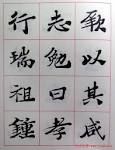 以其咸
志勉曰孝
行瑞祖鍾